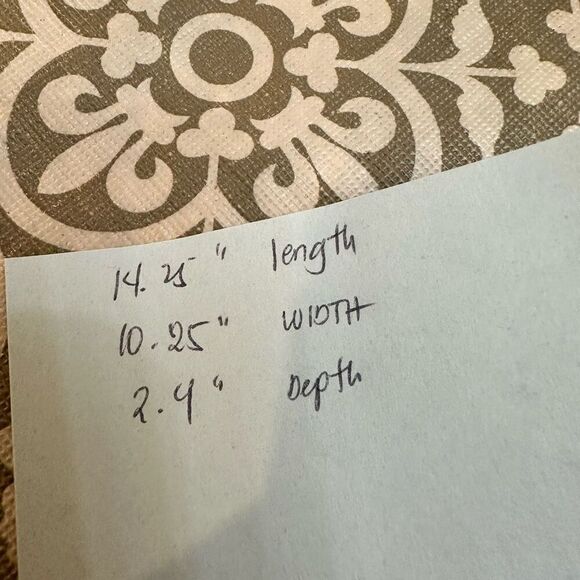 14.25" length
10.25" WIDTH
2.4" Depth